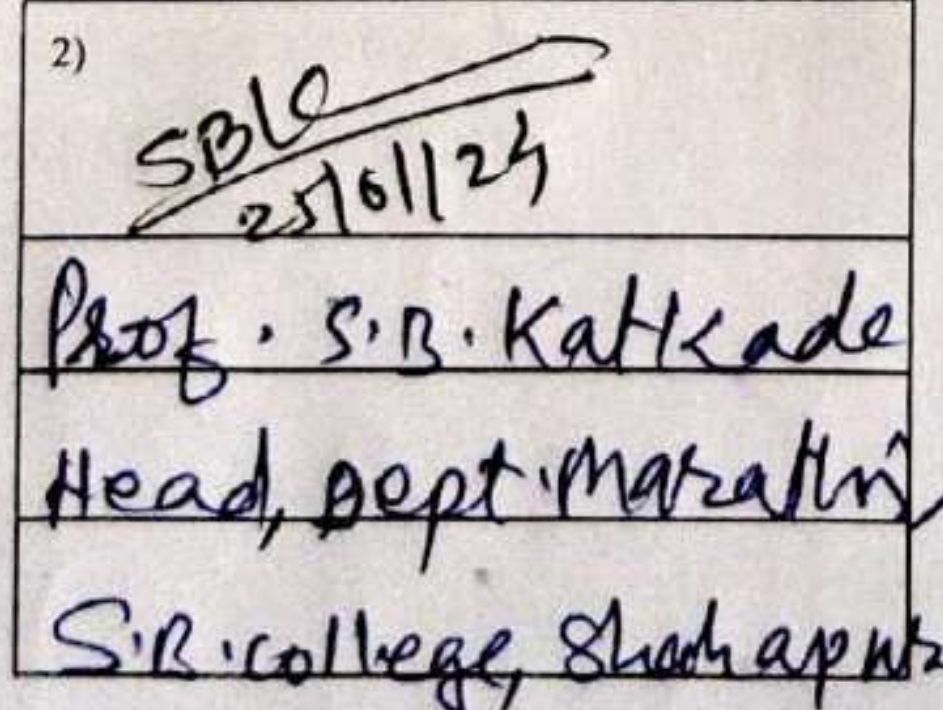 2)
SBK
25/01/24
Prof. S.B. Katkade
Head, Dept. Marathi,
S.B. college, Shahapur